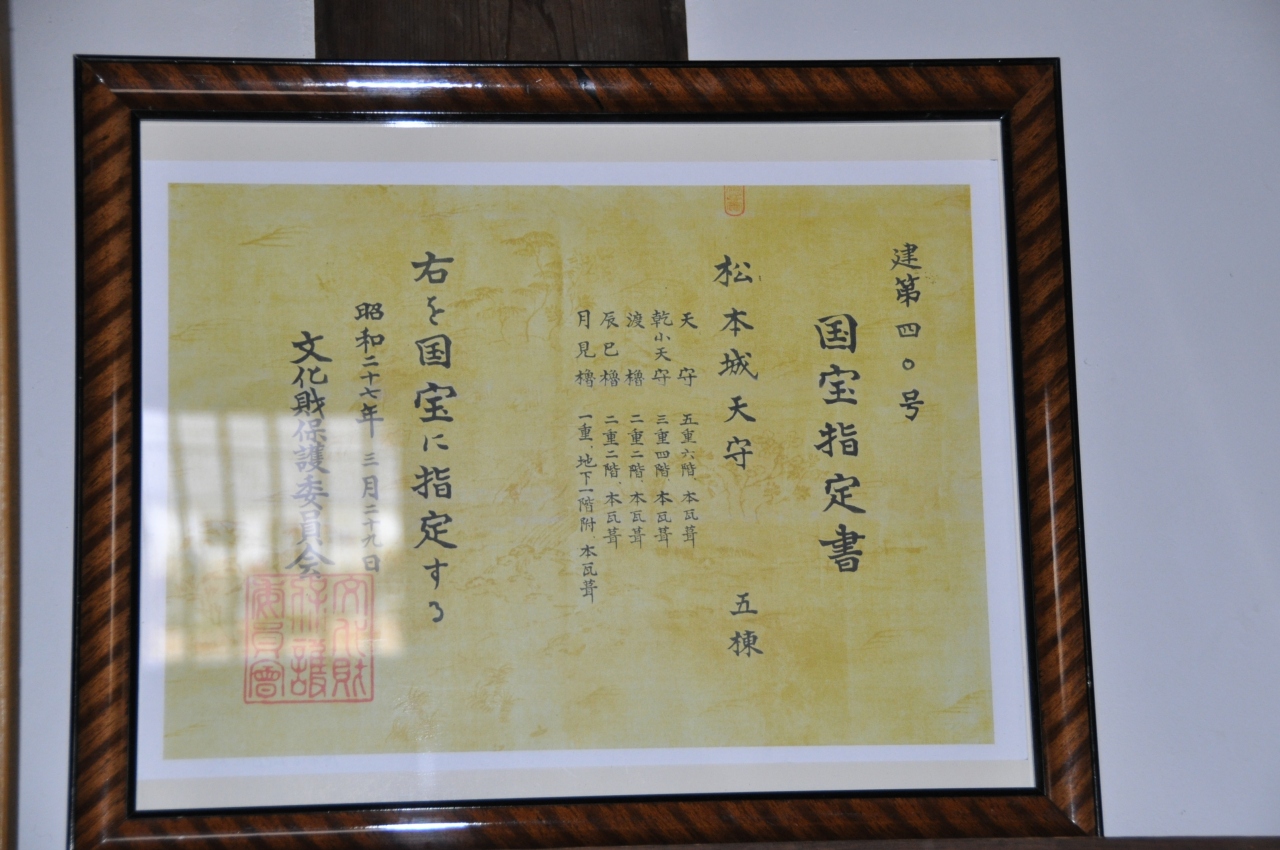 建第四〇号
国宝指定書
松本城天守 五棟
天守 五重六階、本瓦葺
乾小天守 三重四階、本瓦葺
渡櫓 二重二階、本瓦葺
辰巳櫓 二重二階、本瓦葺
月見櫓 一重、地下一階附、本瓦葺
右を国宝に指定する
昭和二十七年 三月二十九日
文化財保護委員会
文化財
保護
委員會